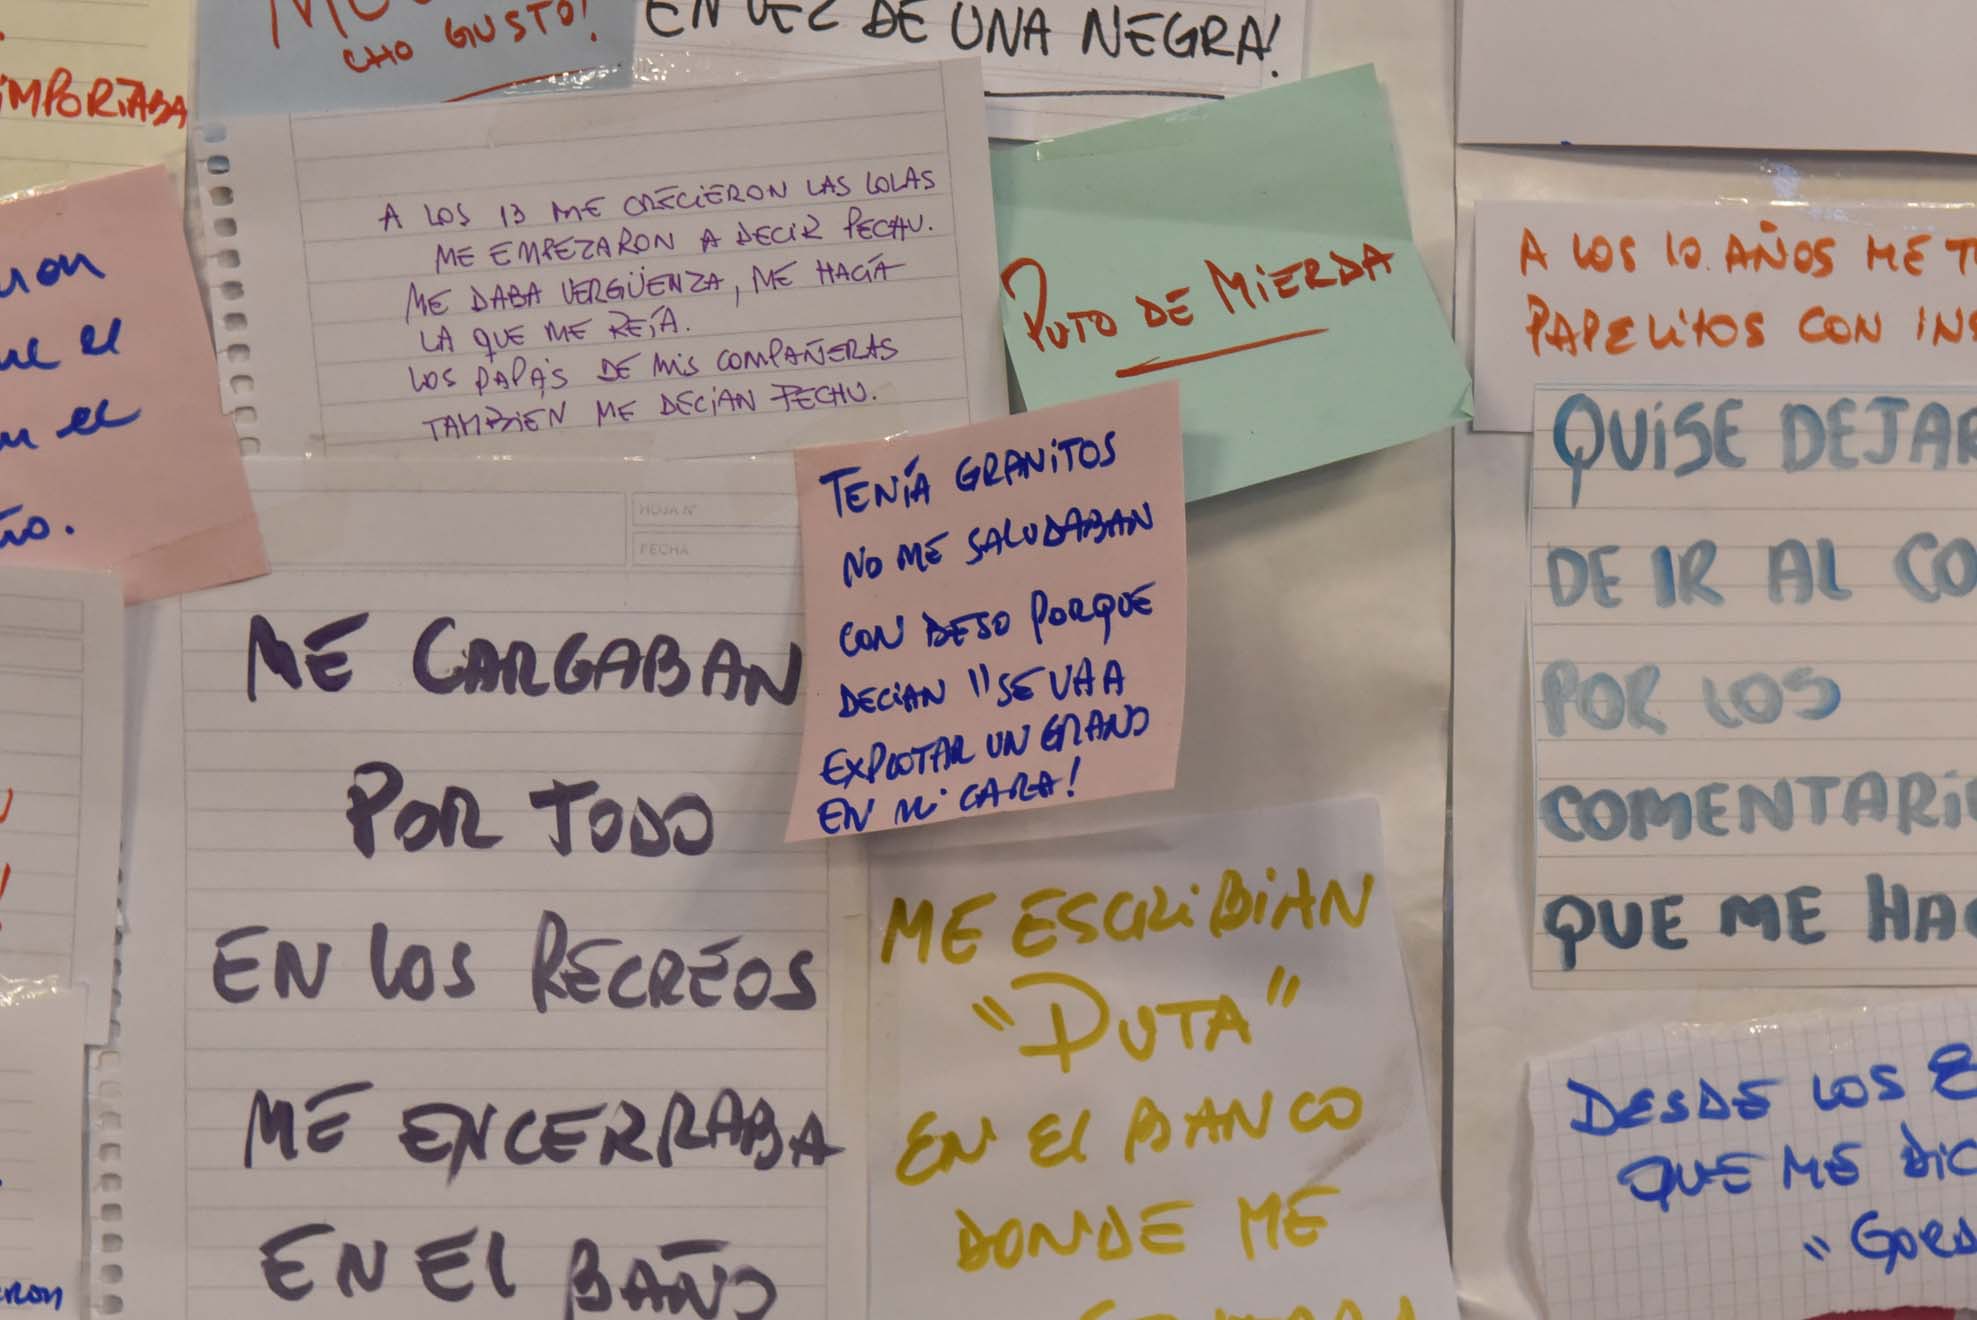 CHO GUSTO!
EN VEZ DE UNA NEGRA!
IMPORTABA
A LOS 13 ME CRECIERON LAS LOLAS
ME EMPEZARON A DECIR PECHU.
ME DABA VERGÜENZA, ME HACÍA
LA QUE ME REÍA.
LOS PAPÁS DE MIS COMPAÑERAS
TAMBIEN ME DECÍAN PECHU.
PUTO DE MIERDA
A LOS 10 AÑOS ME
PAPELITOS CON
QUISE DEJAR
DE IR AL
POR LOS
QUE ME
el
el
HOJA Nº
FECHA
TENÍA GRANITOS
NO ME SALUDABAN
CON BESO PORQUE
DECÍAN "SE VA A
EXPLOTAR UN GRANO
EN MI CARA!
ME CARGABAN
POR TODO
EN LOS RECREOS
ME ENCERRABA
EN EL BAÑO
ME ESCRIBÍAN
"PUTA"
EN EL BANCO
DONDE ME
DESDE LOS
QUE ME